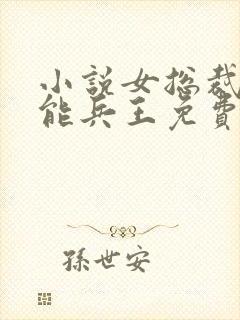 小説女總裁
能兵王免費
孫世安